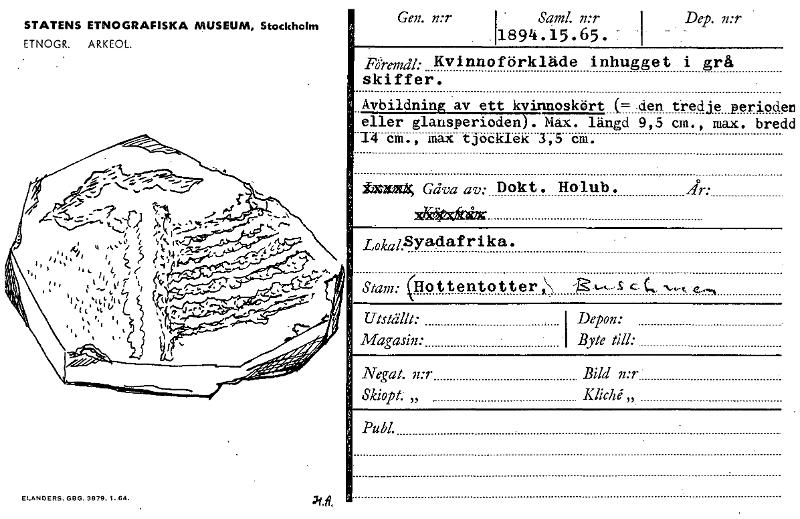 STATENS ETNOGRAFISKA MUSEUM, Stockholm
ETNOGR. ARKEOL.
Gen. n:r Saml. n:r Dep. n:r
1894.15.65.
Föremål: Kvinnoförkläde inhugget i grå
skiffer.
Avbildning av ett kvinnoskört (= den tredje perioden
eller glansperioden). Max. längd 9,5 cm., max. bredd
14 cm., max tjocklek 3,5 cm.
Gåva av: Dokt. Holub. År:
Lokal: Syadafrika.
Stam: (Hottentotter,) Buschmen
Utställt: Depon:
Magasin: Byte till:
Negat. n:r Bild n:r
Skiopt. „ Kliché „
Publ.
ELANDERS, GBG. 3879. 1. 64.
H.A.